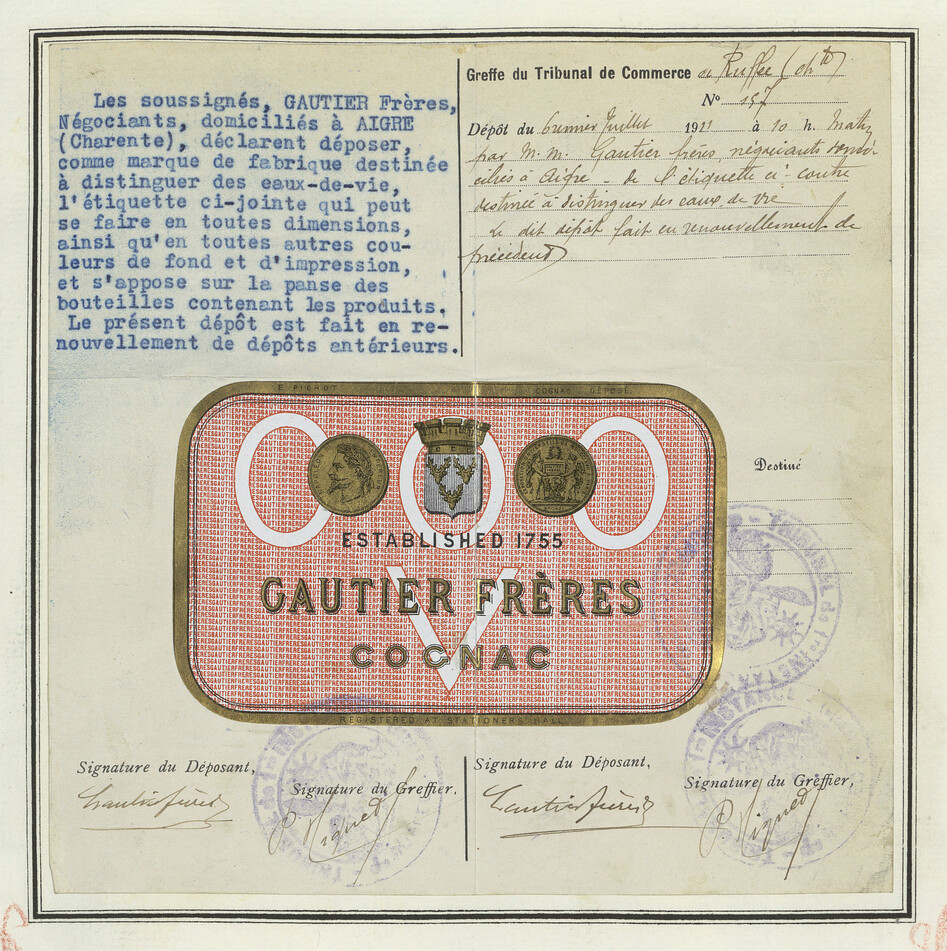 Les soussignés, GAUTIER Frères,
Négociants, domiciliés à AIGRE
(Charente), déclarent déposer,
comme marque de fabrique destinée
à distinguer des eaux-de-vie,
l'étiquette ci-jointe qui peut
se faire en toutes dimensions,
ainsi qu'en toutes autres cou-
leurs de fond et d'impression,
et s'appose sur la panse des
bouteilles contenant les produits.
Le présent dépôt est fait en re-
nouvellement de dépôts antérieurs.
Greffe du Tribunal de Commerce de Ruffec (Chte)
No 157
Dépôt du premier Juillet 1911 à 10 h. Matin
par M.M. Gautier frères, négociants domi-
ciliés à Aigre - de l'étiquette ci-contre
destinée à distinguer des eaux de vie
Le dit dépôt fait en renouvellement de
précédents
E. PICHOT COGNAC DÉPOSÉ
OOO
ESTABLISHED 1755
GAUTIER FRÈRES
V
COGNAC
REGISTERED AT STATIONERS HALL
Destiné
Signature du Déposant,
Gautier frères
Signature du Greffier.
Signature du Déposant,
Gautier frères
Signature du Greffier,